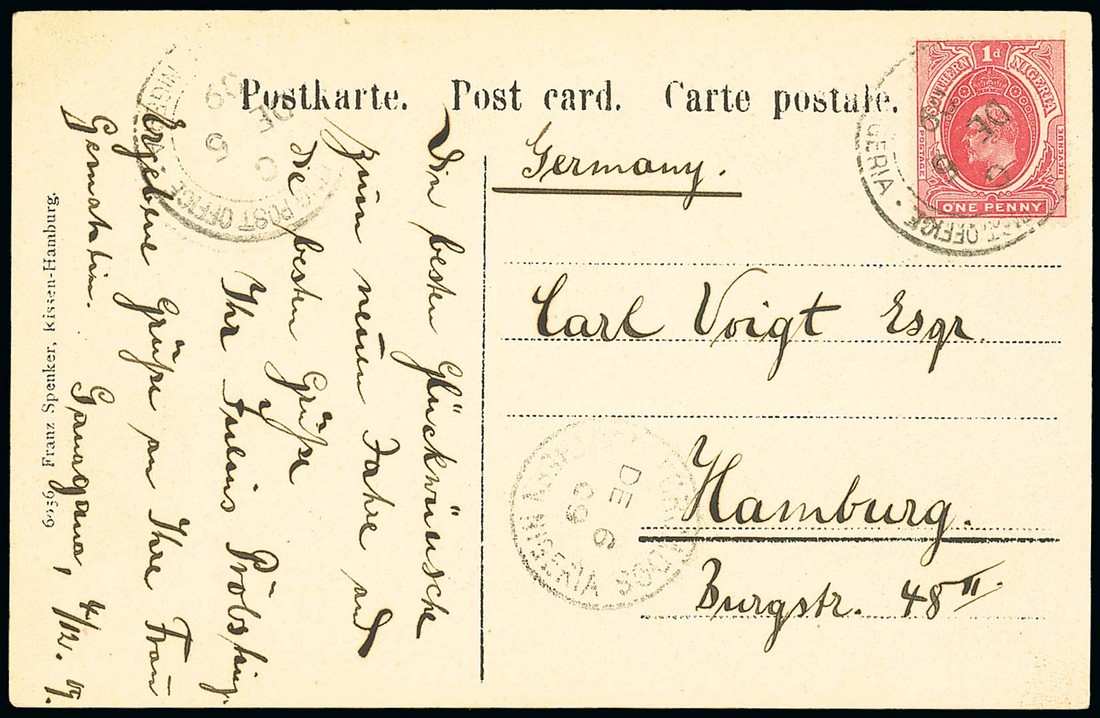 Postkarte. Post card. Carte postale.
Germany.
Carl Voigt Esqr.
Hamburg.
Burgstr. 48 II
Die besten Glückwünsche
zum neuen Jahre und
die besten Grüße
Ihr Julius Pröbsting
Ergebene Grüße an Ihre Frau
Gemahlin.
4/12. 09.
6936 Franz Spenker, Kissen-Hamburg.
1d
SOUTHERN NIGERIA
POSTAGE
REVENUE
ONE PENNY
POST OFFICE
DE 6
09
NIGERIA
DE 6
09
POST OFFICE
DE 6
09